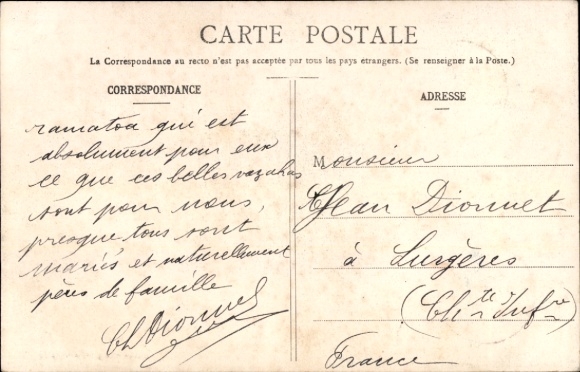 CARTE POSTALE
La Correspondance au recto n'est pas acceptée par tous les pays etrangers. (Se renseigner à la Poste.)
CORRESPONDANCE
ramatoa qui est
absolument pour eux
ce que ces belles vazahas
sont pour nous,
presque tous sont
mariés et naturellement
pères de famille
Ch Dionnet
ADRESSE
Monsieur
Jean Dionnet
à Surgères
(Ch.te Infre)
France